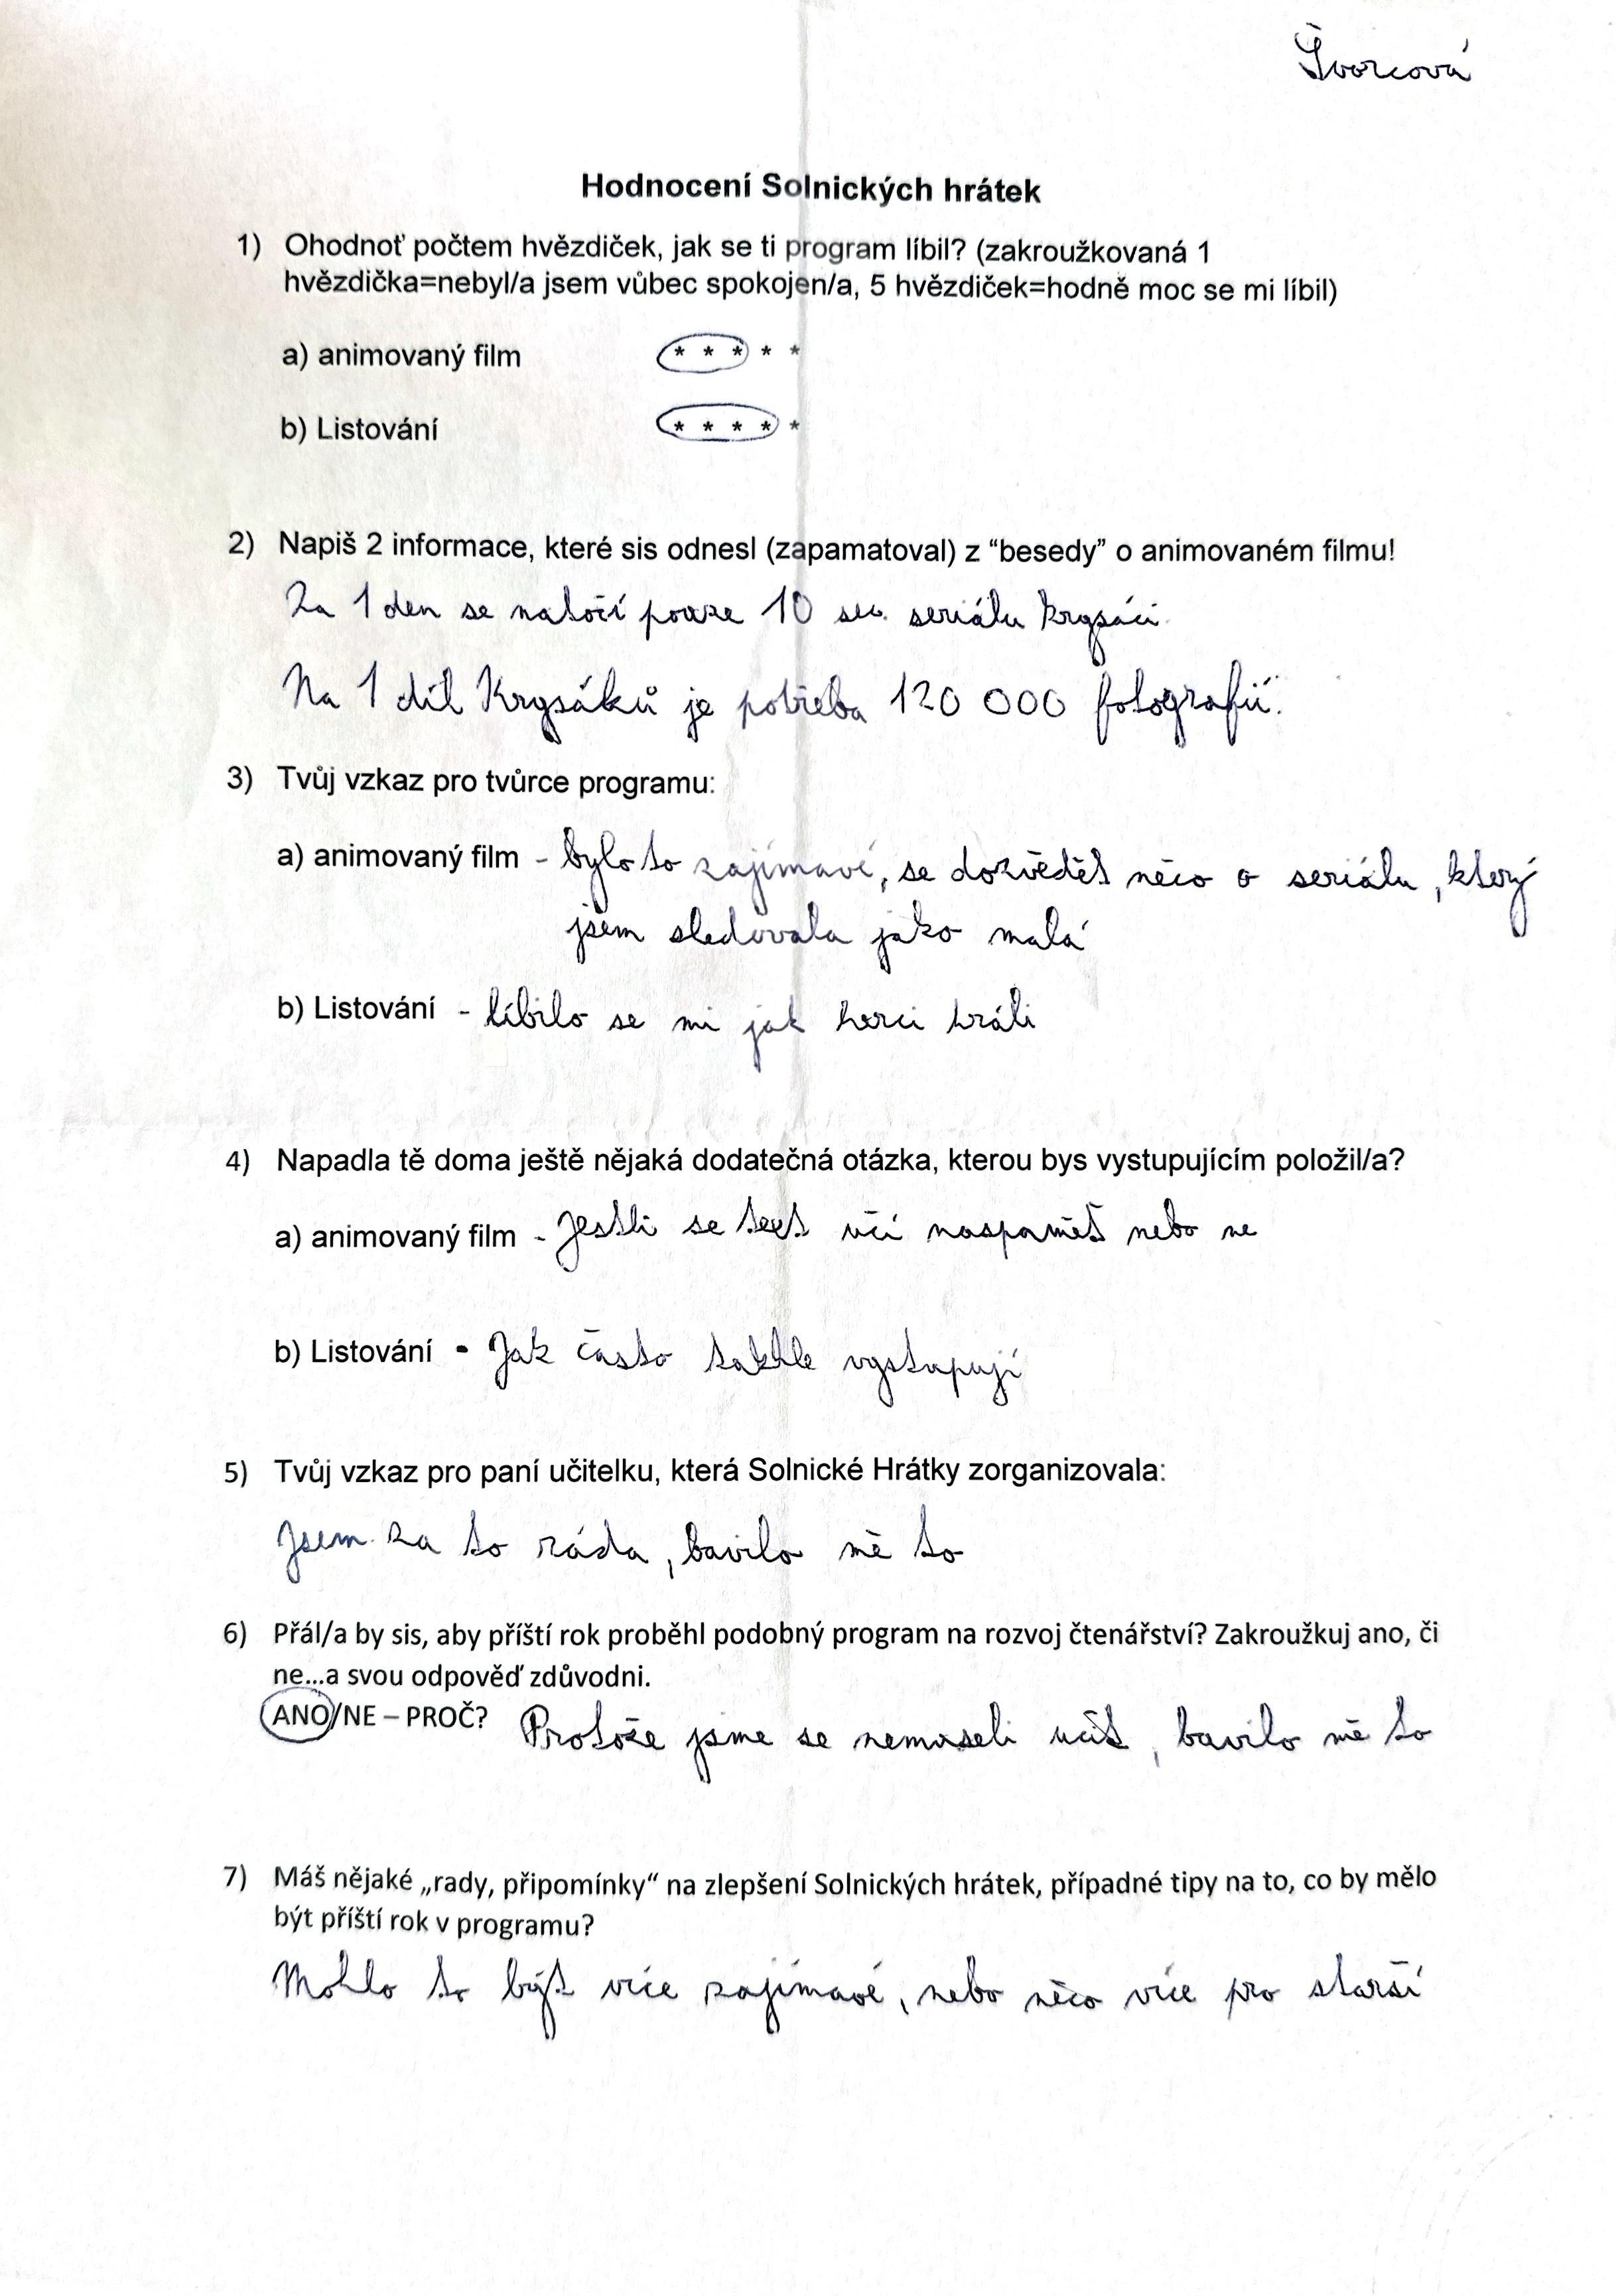 Švorcová
Hodnocení Solnických hrátek
1) Ohodnoť počtem hvězdiček, jak se ti program líbil? (zakroužkovaná 1
hvězdička=nebyl/a jsem vůbec spokojen/a, 5 hvězdiček=hodně moc se mi líbil)
a) animovaný film * * * * *
b) Listování * * * * *
2) Napiš 2 informace, které sis odnesl (zapamatoval) z “besedy” o animovaném filmu!
Za 1 den se natočí pouze 10 sec. seriálu krysáci.
Na 1 díl Krysáků je potřeba 120 000 fotografií.
3) Tvůj vzkaz pro tvůrce programu:
a) animovaný film - bylo to zajímavé, se dozvědět něco o seriálu, který
jsem sledovala jako malá
b) Listování - líbilo se mi jak herci hráli
4) Napadla tě doma ještě nějaká dodatečná otázka, kterou bys vystupujícím položil/a?
a) animovaný film - Jestli se text učí naspamět nebo ne
b) Listování - Jak často takhle vystupují
5) Tvůj vzkaz pro paní učitelku, která Solnické Hrátky zorganizovala:
Jsem za to ráda, bavilo mě to
6) Přál/a by sis, aby příští rok proběhl podobný program na rozvoj čtenářství? Zakroužkuj ano, či
ne...a svou odpověď zdůvodni.
ANO/NE – PROČ? Protože jsme se nemuseli učit, bavilo mě to
7) Máš nějaké „rady, připomínky“ na zlepšení Solnických hrátek, případné tipy na to, co by mělo
být příští rok v programu?
Mohlo to být více zajímavé, nebo něco více pro starší